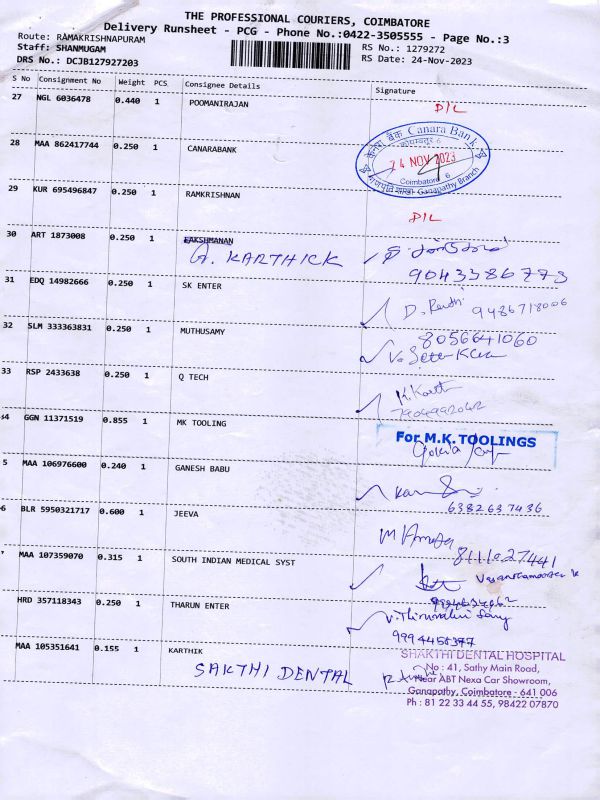 THE PROFESSIONAL COURIERS, COIMBATORE
Delivery Runsheet - PCG - Phone No.:0422-3505555 - Page No.:3
Route: RAMAKRISHNAPURAM
Staff: SHANMUGAM
DRS No.: DCJB127927203
RS No.: 1279272
RS Date: 24-Nov-2023
S No Consignment No Weight PCS Consignee Details Signature
27 NGL 6036478 0.440 1 POOMANIRAJAN D/L
28 MAA 862417744 0.250 1 CANARABANK
केनरा बैंक Canara Bank
24 NOV 2023
Coimbatore 6
Ganapathy Branch
29 KUR 695496847 0.250 1 RAMKRISHNAN D/L
30 ART 1873008 0.250 1 LAKSHMANAN
A. KARTHICK
9043386773
31 EDQ 14982666 0.250 1 SK ENTER
9486718006
32 SLM 333363831 0.250 1 MUTHUSAMY
8056641060
33 RSP 2433638 0.250 1 Q TECH
7904992042
34 GGN 11371519 0.855 1 MK TOOLING
For M.K. TOOLINGS
5 MAA 106976600 0.240 1 GANESH BABU
6382637436
6 BLR 5950321717 0.600 1 JEEVA
8111027441
MAA 107359070 0.315 1 SOUTH INDIAN MEDICAL SYST
HRD 357118343 0.250 1 THARUN ENTER
9994456377
MAA 105351641 0.155 1 KARTHIK
SAKTHI DENTAL
SHAKTHI DENTAL HOSPITAL
No : 41, Sathy Main Road,
Near ABT Nexa Car Showroom,
Ganapathy, Coimbatore - 641 006
Ph : 81 22 33 44 55, 98422 07870